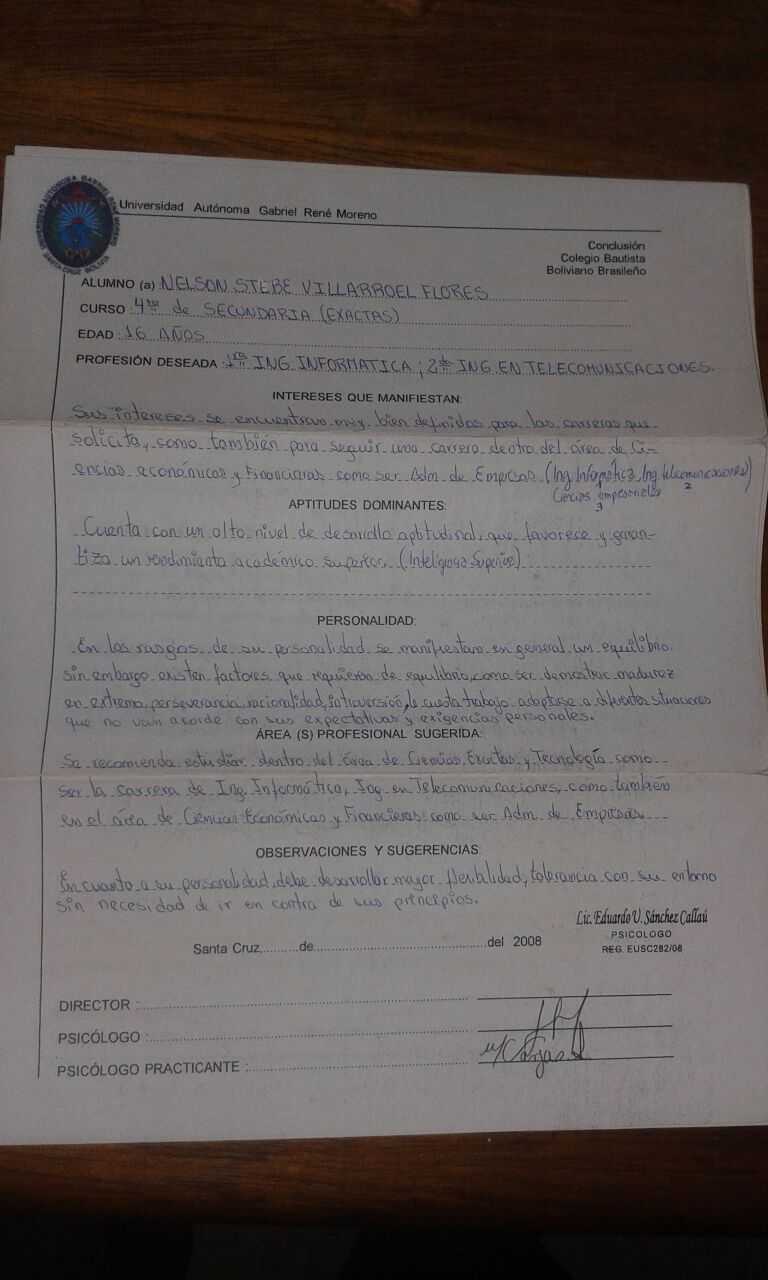 UNIVERSIDAD AUTONOMA GABRIEL RENE MORENO
SANTA CRUZ BOLIVIA
Universidad Autónoma Gabriel René Moreno
Conclusión
Colegio Bautista
Boliviano Brasileño
ALUMNO (a) NELSON STEBE VILLARROEL FLORES
CURSO 4to de SECUNDARIA (EXACTAS)
EDAD : 16 AÑOS
PROFESIÓN DESEADA : 1ra ING. INFORMATICA ; 2da ING. EN TELECOMUNICACIONES.
INTERESES QUE MANIFIESTAN:
Sus intereses se encuentran muy bien definidos para las carreras que
solicita, como también para seguir una carrera dentro del área de Ci-
encias económicas y Financieras como ser Adm. de Empresas (Ing. Informática, Ing telecomunicaciones)
1 2
Ciencias empresariales
3
APTITUDES DOMINANTES:
Cuenta con un alto nivel de desarrollo aptitudinal, que favorece y garan-
tiza un rendimiento académico superior. (Inteligencia Superior)
PERSONALIDAD:
En los rasgos de su personalidad se manifiestan en general un equilibrio,
sin embargo existen factores que requieren de equilibrio, como ser demostrar madurez
en extremo, perseverancia, racionalidad, introversión, le cuesta trabajo adaptarse a diferentes situaciones
que no vayan acorde con sus expectativas y exigencias personales.
ÁREA (S) PROFESIONAL SUGERIDA:
Se recomienda estudiar dentro del área de Ciencias Exactas y Tecnología como
ser la carrera de Ing. Informática, Ing. en Telecomunicaciones, como también
en el área de Ciencias Económicas y Financieras como ser Adm. de Empresas.
OBSERVACIONES Y SUGERENCIAS:
En cuanto a su personalidad debe desarrollar mayor flexibilidad, tolerancia con su entorno
sin necesidad de ir en contra de sus principios.
Lic. Eduardo U. Sánchez Callaú
PSICOLOGO
REG. EUSC282/06
Santa Cruz,..........de................................................del 2008
DIRECTOR :
PSICÓLOGO :
PSICÓLOGO PRACTICANTE :